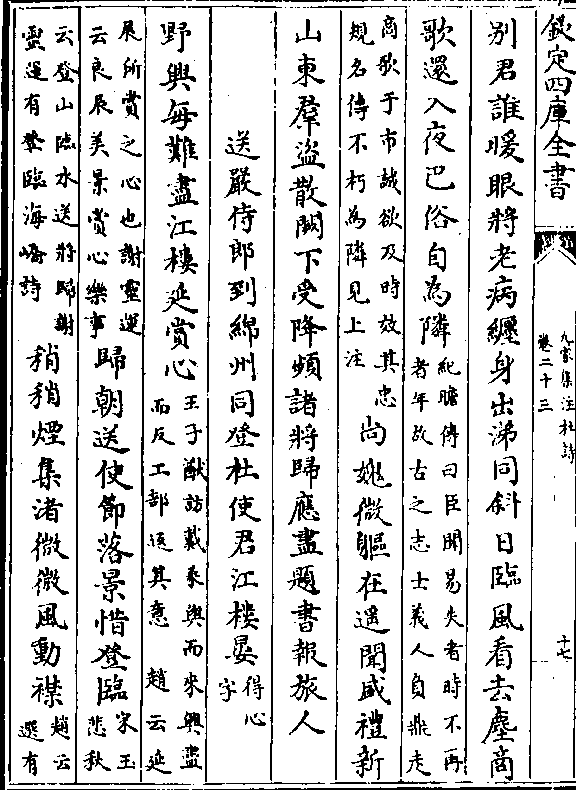 欽定四庫全書
九家集注杜詩
卷二十三
十七
别君誰暖眼將老病纏身出涕同斜日臨風看去塵商
歌還入夜巴俗自為隣
紀瞻傳曰臣聞易失者時不再
者年故古之志士義人負鼎走
商歌于市誠欲及時效其忠
規名傳不朽為隣見上注
尚媿微軀在遥聞盛禮新
山東羣盜散闕下受降頻諸將歸應盡題書報旅人
送嚴侍郎到綿州同登杜使君江樓晏
得心
字
野興每難盡江樓延賞心
王子猷訪戴乗興而來興盡
而反工部返其意 趙云延
展所賞之心也謝靈運
云良辰美景賞心樂事
歸朝送使節落景惜登臨
宋玉
悲秋
云登山臨水送將歸謝
靈運有登臨海嶠詩
稍稍煙集渚微微風動襟
趙云
選有